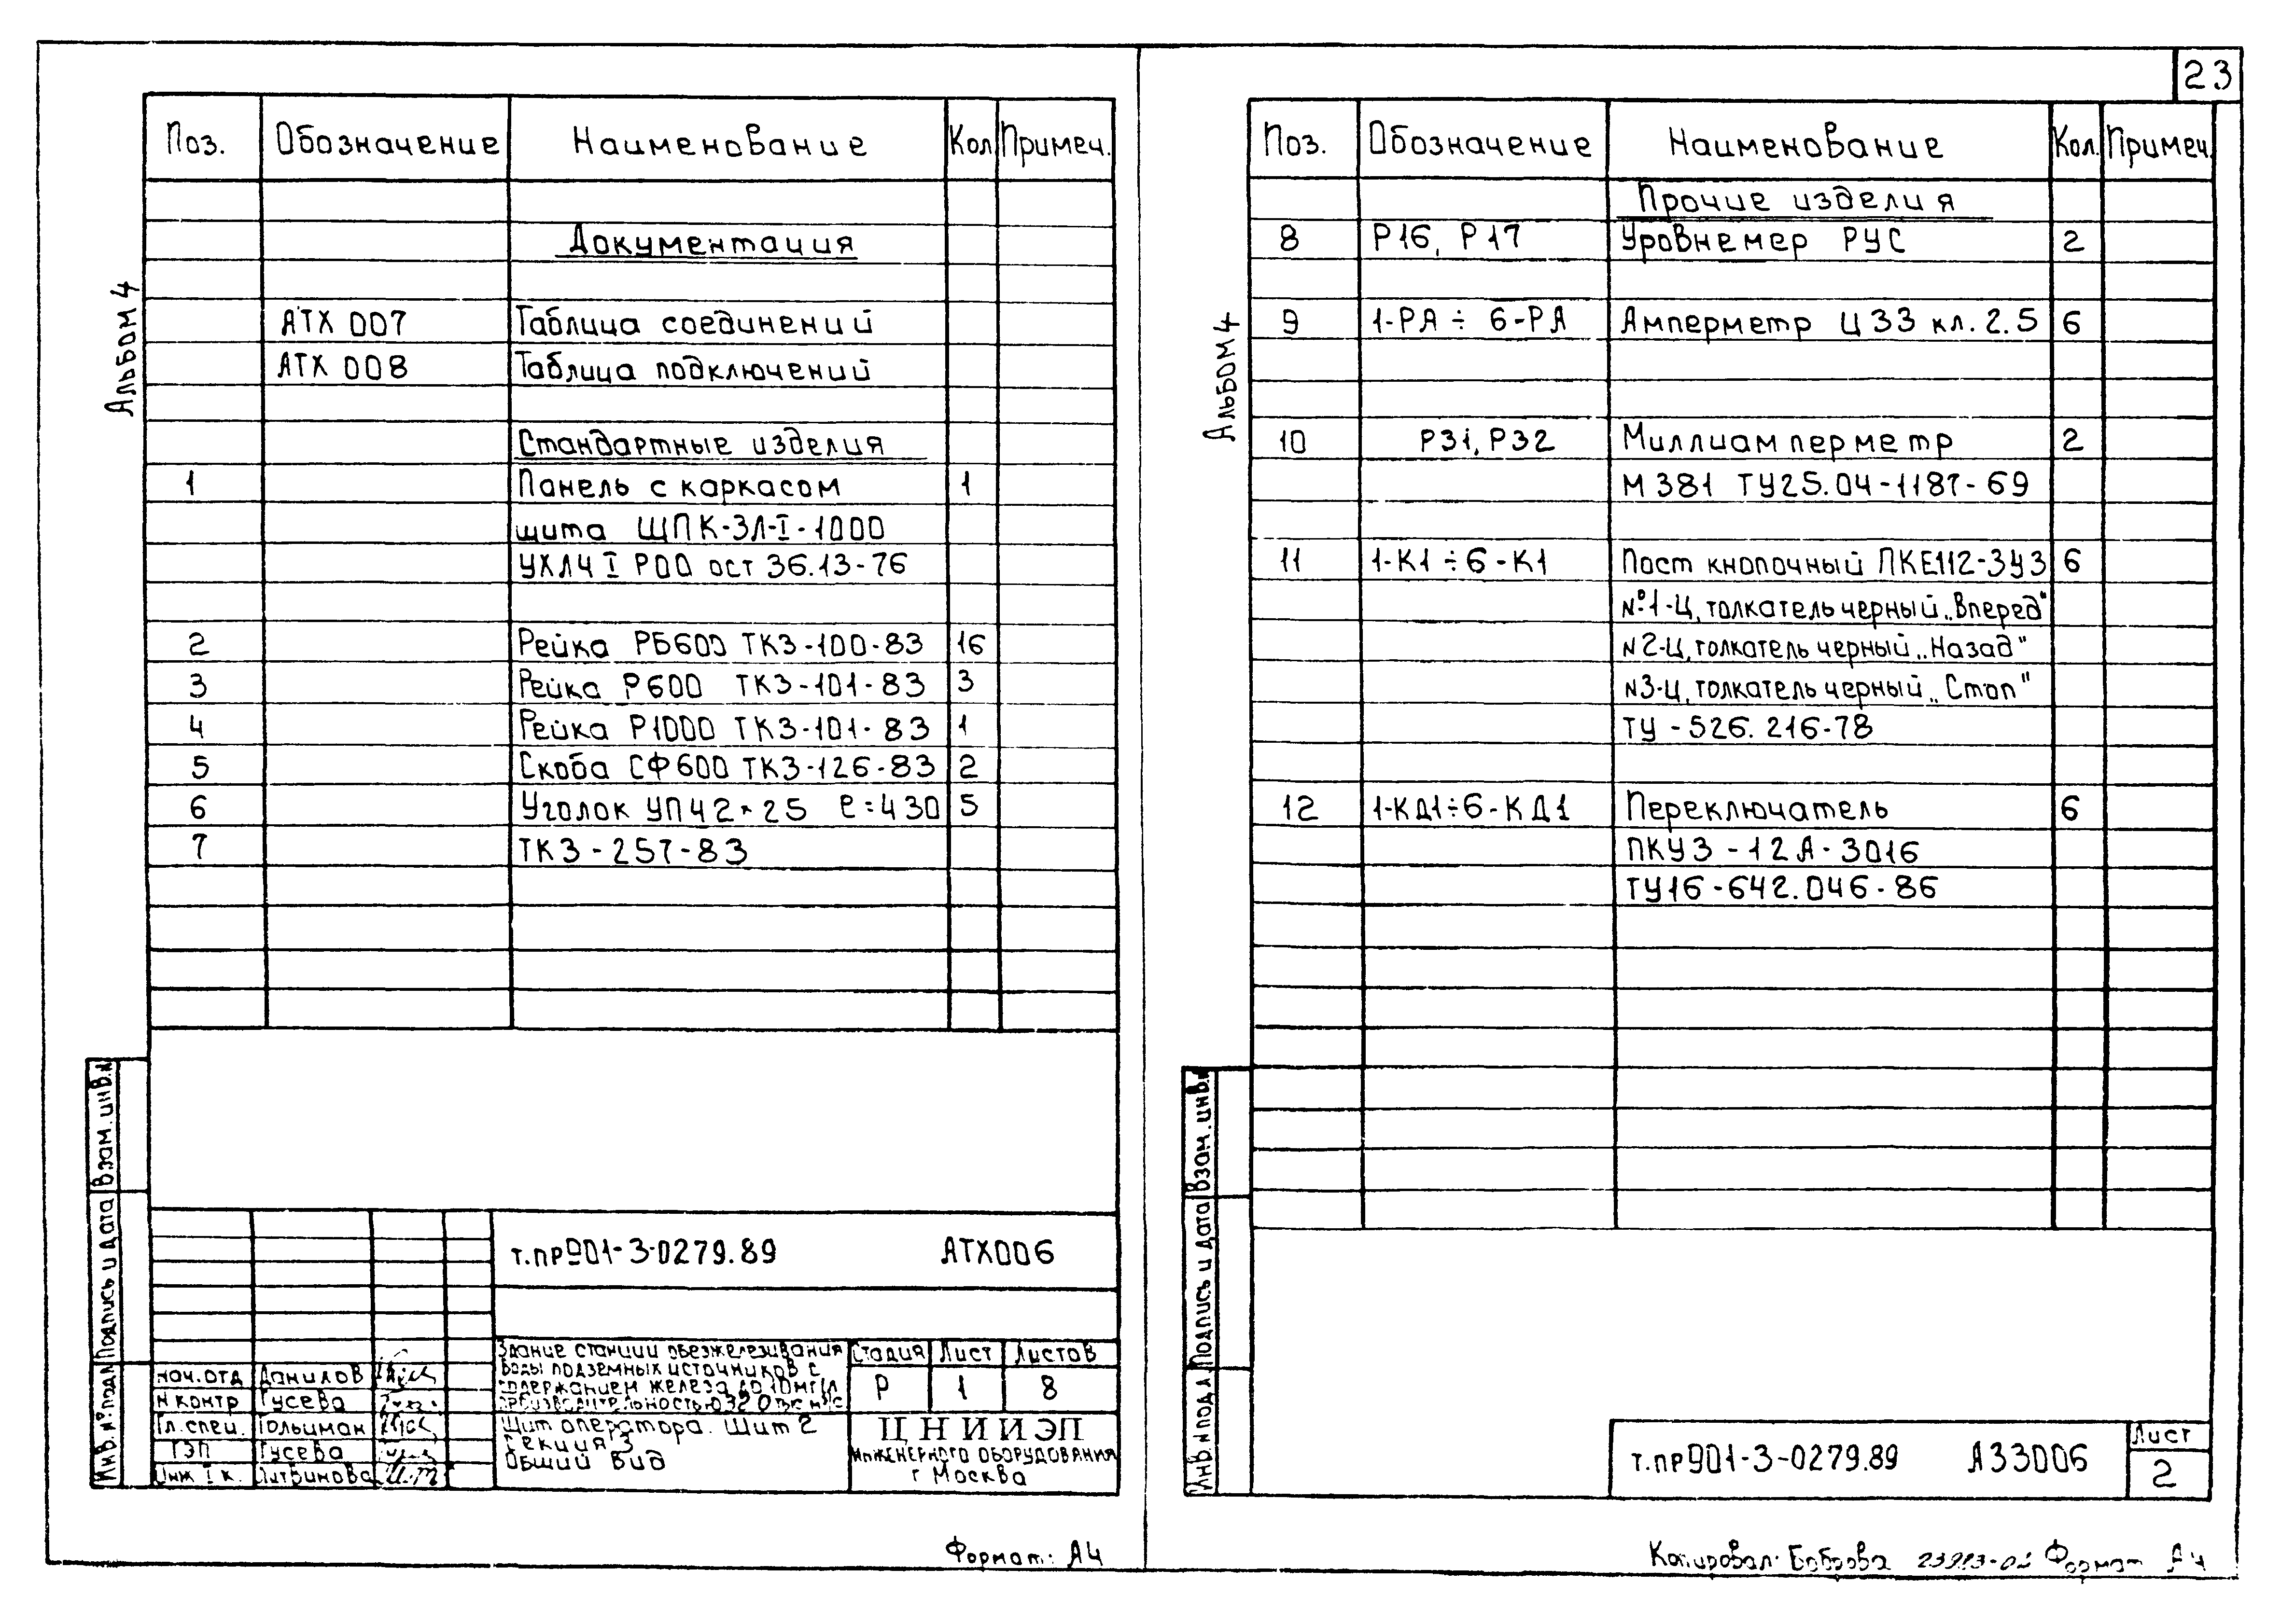 23
Альбом 4
Поз. Обозначение Наименование Кол Примеч.
Документация
АТХ 007 Таблица соединений
АТХ 008 Таблица подключений
Стандартные изделия
1 Панель с каркасом 1
щита ЩПК-ЗЛ-I-1000
УХЛЧ I Р00 ост 36.13-76
2 Рейка РБ600 ТКЗ-100-83 16
3 Рейка Р600 ТКЗ-101-83 3
4 Рейка Р1000 ТКЗ-101-83 1
5 Скоба СФ600 ТКЗ-126-83 2
6 Уголок УП42×25 е=430 5
7 ТКЗ-257-83
Взам. инв.№
Подпись и дата
Инв.№подл
т.пр901-3-0279.89 АТХ006
Здание станции обезжелезивания
воды подземных источников с
содержанием железа до 10мг/л
производительностью 3,20 тыс м³/с
Стадия Лист Листов
Р 1 8
нач.отд Данилов
Н контр Гусева
Гл.спец. Гольцман
ГЭП Гусева
Инж I к. Литвинова
Щит оператора. Щит 2
Секция 3
Общий вид
ЦНИИЭП
инженерного оборудования
г Москва
Формат: А4
Альбом 4
Поз. Обозначение Наименование Кол. Примеч.
Прочие изделия
8 Р16, Р17 Уровнемер РУС 2
9 1-РА ÷ 6-РА Амперметр Ц33 кл. 2.5 6
10 Р31, Р32 Миллиамперметр 2
М 381 ТУ25.04-1187-69
11 1-К1 ÷ 6-К1 Пост кнопочный ПКЕ112-3У3 6
№1-Ц, толкатель черный „Вперед"
N2-Ц, толкатель черный „Назад"
N3-Ц, толкатель черный „Стоп"
ТУ-526.216-78
12 1-КД1÷6-КД1 Переключатель 6
ПКУ3-12А-3016
ТУ16-642.046-86
Взам. инв.№
Подпись и дата
Инв.№подл
т.пр901-3-0279.89 А33006
Лист
2
Копировал: Боброва Формат А4